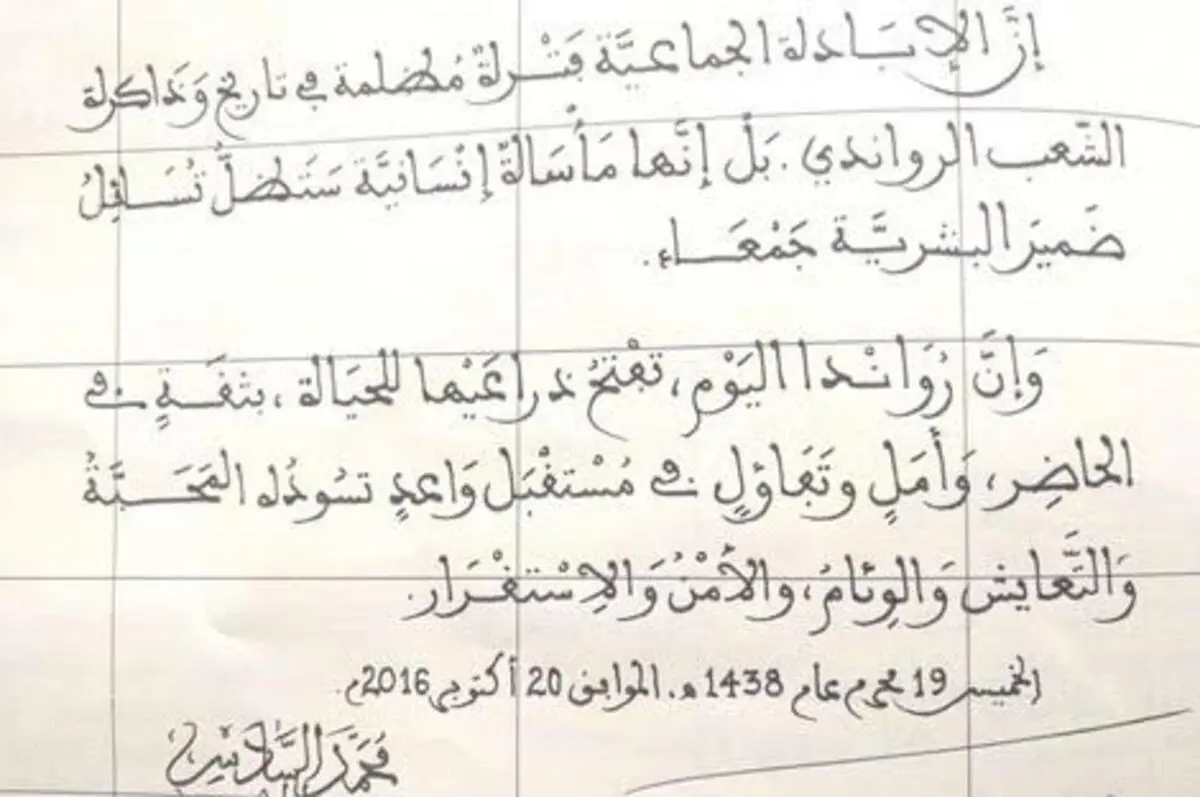 إنَّ الإبادة الجماعيَّة فَتْرة مُظلمة في تاريخ وَذاكرة
الشّعب الرواندي. بَلْ إنَّها مَأْسَاةٌ إنْسَانيَّة سَتَظلُّ تُسَائِلُ
ضَميرَ البَشريَّة جَمْعَاء.
وَإنَّ رُوَانْدا اليَوْم، تفْتَحُ ذراعَيْها للحيَاة، بثقَةٍ في
الحاضِر، وَأَمَلٍ وتَفاؤلٍ في مُسْتقْبَل وَاعدٍ تسُودُه المَحَبَّةُ
وَالتَّعايش وَالوِئامُ، والأمْنُ وَالاِسْتقْرَار.
الخميس 19 محرم عام 1438 هـ. الموافق 20 أكتوبر 2016م.
مُحمَّد السَّادس